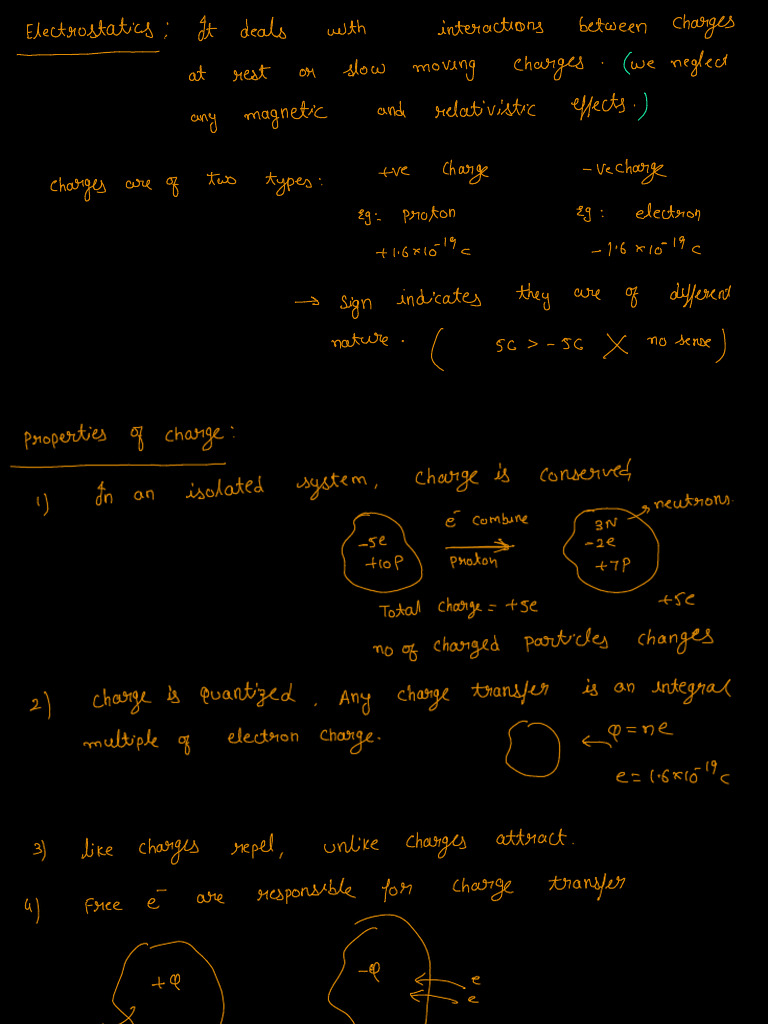 Electrostatics : It deals with interactions between charges
at rest or slow moving charges. (we neglect
any magnetic and relativistic effects.)
charges are of two types: +ve charge -ve charge
Eg:- proton Eg: electron
+1.6×10⁻¹⁹ C -1.6×10⁻¹⁹ C
→ Sign indicates they are of different
nature. ( 5C > -5C X no sense)
Properties of charge:
1) In an isolated system, charge is conserved
neutrons.
e⁻ combine
proton
-5e
+10P
3N
-2e
+7P
Total charge = +5e +5e
no of charged particles changes
2) Charge is Quantized. Any charge transfer is an integral
multiple of electron charge.
Q = ne
e = 1.6×10⁻¹⁹ C
3) Like charges repel, unlike charges attract.
4) Free e⁻ are responsible for charge transfer
+Q -Q e
e